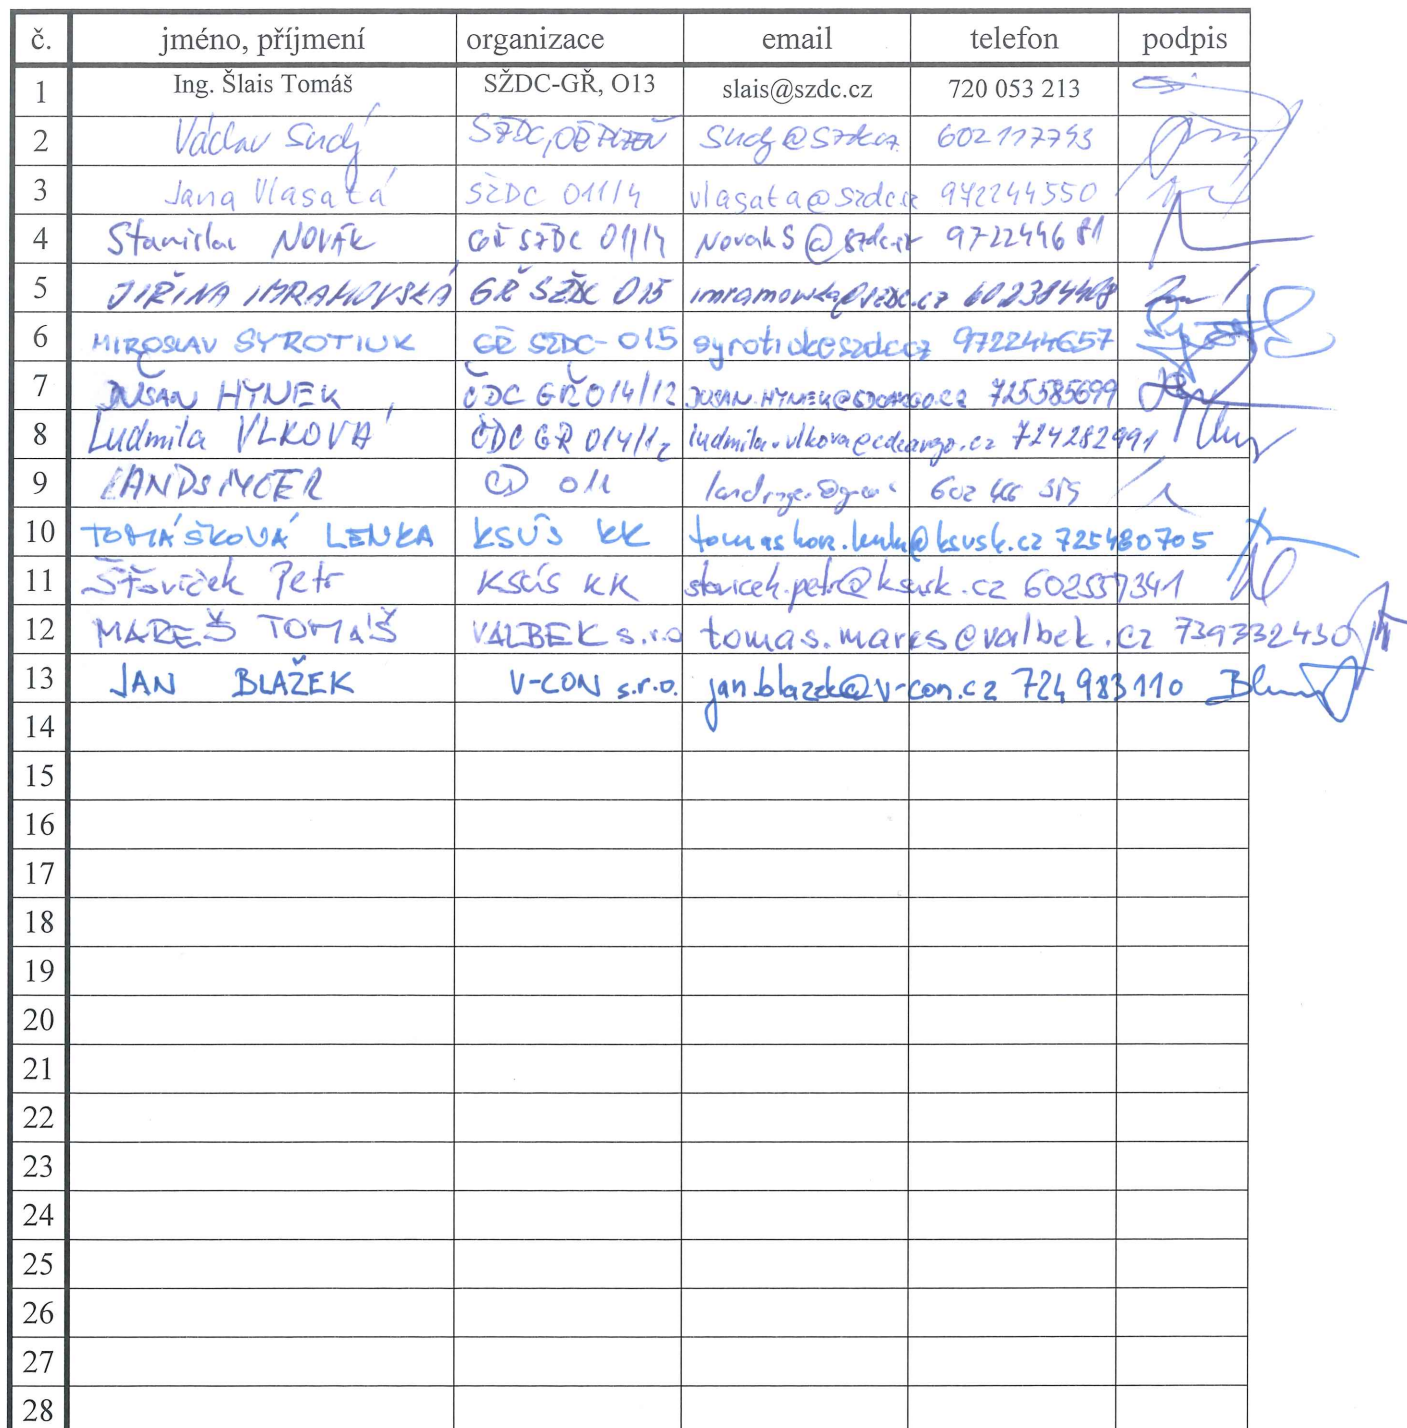 č. jméno, příjmení organizace email telefon podpis
1 Ing. Šlais Tomáš SŽDC-GŘ, O13 slais@szdc.cz 720 053 213
2 Václav Sudý SŽDC, OŘ PLZEŇ 602117743
3 Jana Vlasatá SŽDC O11/4 vlasata@szdc.cz 972244550
4 Stanislav NOVÁK GŘ SŽDC O11/4 NovakS@szdc.cz 972244681
5 JIŘINA IMRAMOVSKÁ GŘ SŽDC O15
6 MIROSLAV SYROTIUK GŘ SŽDC - O15 syrotiuk@szdc.cz 972244657
7 DUŠAN HYNEK ČDC GŘ O14/12 725585699
8 Ludmila VLKOVÁ ČDC GŘ O14/12 ludmila.vlkova@cdcargo.cz 724282991
9 ČD O11
10 TOMÁŠKOVÁ LENKA KSÚS KK 725480705
11 Šťovíček Petr KSÚS KK stovicek.petr@ksusk.cz 602557341
12 MAREŠ TOMÁŠ VALBEK s.r.o tomas.mares@valbek.cz 739332430
13 JAN BLAŽEK V-CON s.r.o. jan.blazek@v-con.cz 724 983 110
14
15
16
17
18
19
20
21
22
23
24
25
26
27
28